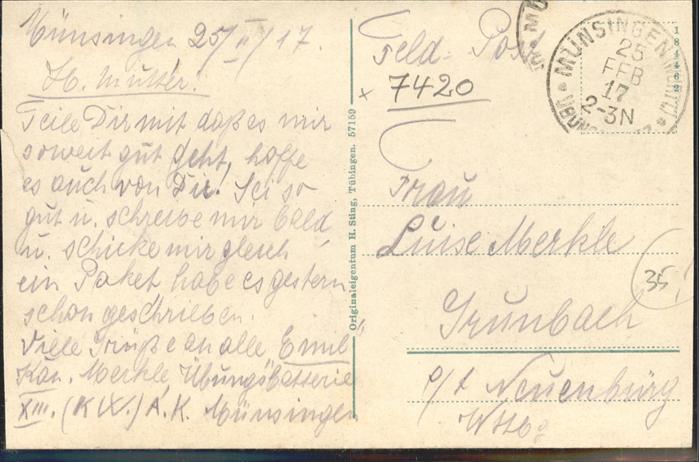 Münsingen 25/II/17.
Lb. Mutter!
Teile Dir mit daß es mir
soweit gut geht, hoffe
es auch von Dir! Sei so
gut u. schreibe mir bald
u. schicke mir gleich
ein Paket habe es gestern
schon geschrieben.
Viele Grüße an alle Emil
Kan. Merkle Übungsbatterie
XIII. (K.W.) A.K. Münsingen
Originaleigentum H. Sting, Tübingen. 57159
Feld-Post
× 7420
MÜNSINGEN
25
FEB
17
2-3N
Frau
Luise Merkle
Grunbach
35
p/t Neuenbürg
Wttbg